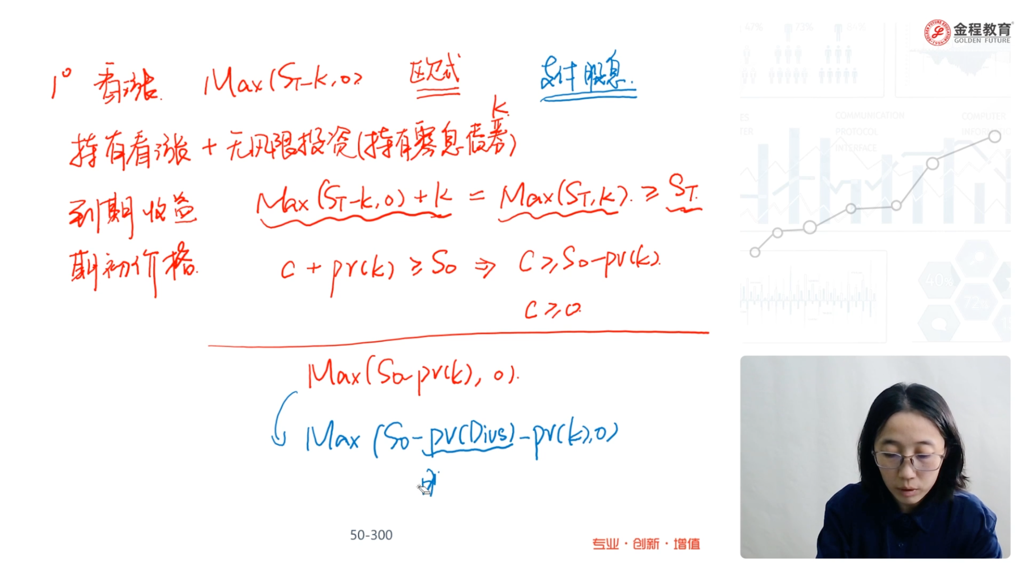 1° 看涨 Max(ST-K,0) 欧式 支付股息.
K
持有看涨+无风险投资(持有零息债券)
到期收益 Max(ST-K,0)+K = Max(ST,K). ≥ ST
期初价格. C+pv(K) ≥ S0 ⇒ C≥S0-pv(K).
C≥0
Max(S0-pv(K), 0).
Max (S0-pv(Divs)-pv(K),0)
50-300
专业·创新·增值
金程教育
GOLDEN FUTURE
COMMUNICATION
INTERFACE